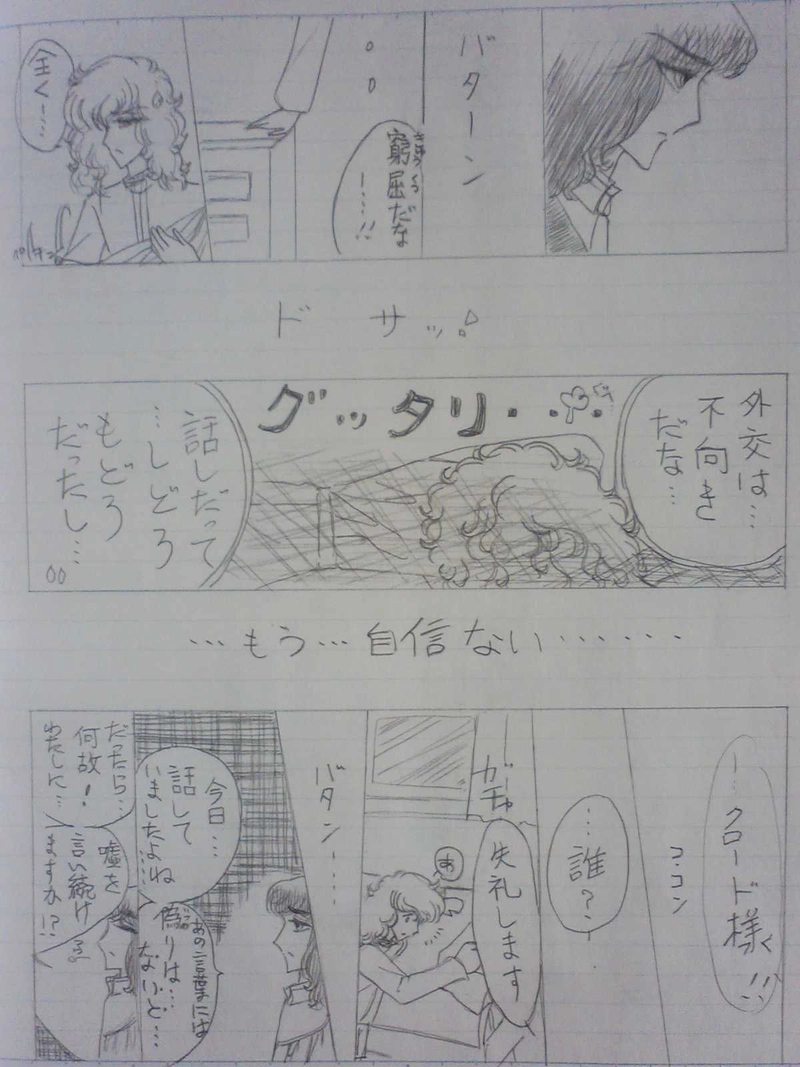 バターン
窮屈だな
きゅうくつ
ー…!!
全く…
ドサッ
外交は…
不向き
だな…
グッタリ・・・
話しだって
…しどろ
もどろ
だったし…
…もう…自信ない……
ー…クロード様!!
コンコン
…誰?
ガチャ
失礼します
あ
バタン…
今日…
話して
いましたよね
……
あの言葉には
偽りは…
ないと…
だったら…
何故!
わたしに…
嘘を
言い続け
ますか!?